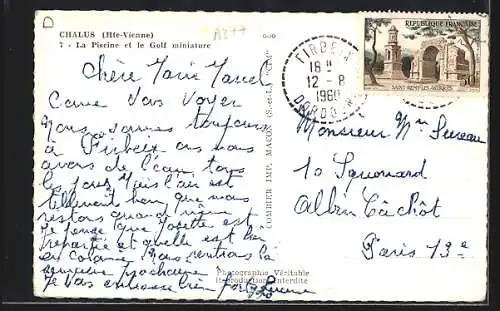 D
CHALUS (Hte-Vienne)
7 - La Piscine et le Golf miniature
A377
Chère Marcel
Comme vous voyez
Nous sommes toujours
à Firbeix où nous
avons de l'eau tous
les jours Mais l'air est
tellement bon que nous
restons quand même
Je pense que Josette est
repartie et qu'elle est
en colonie. Nous rentrons la
semaine prochaine
Je vous embrasse bien fort
COMBIER IMP. MACON (S.-et-L.) "CIM"
Photographie Véritable
Reproduction Interdite
FIRBEIX
18 H
12 - 8
1960
DORDOGNE
REPUBLIQUE FRANÇAISE
SAINT-REMY LES ANTIQUES
Monsieur
10 Square
Albin Cachot
Paris 13e